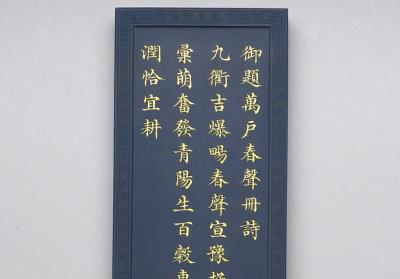 御題萬戶春聲冊詩
九衢吉爆暢春聲宣豫
彙萌奮發青陽生百穀
潤恰宜耕